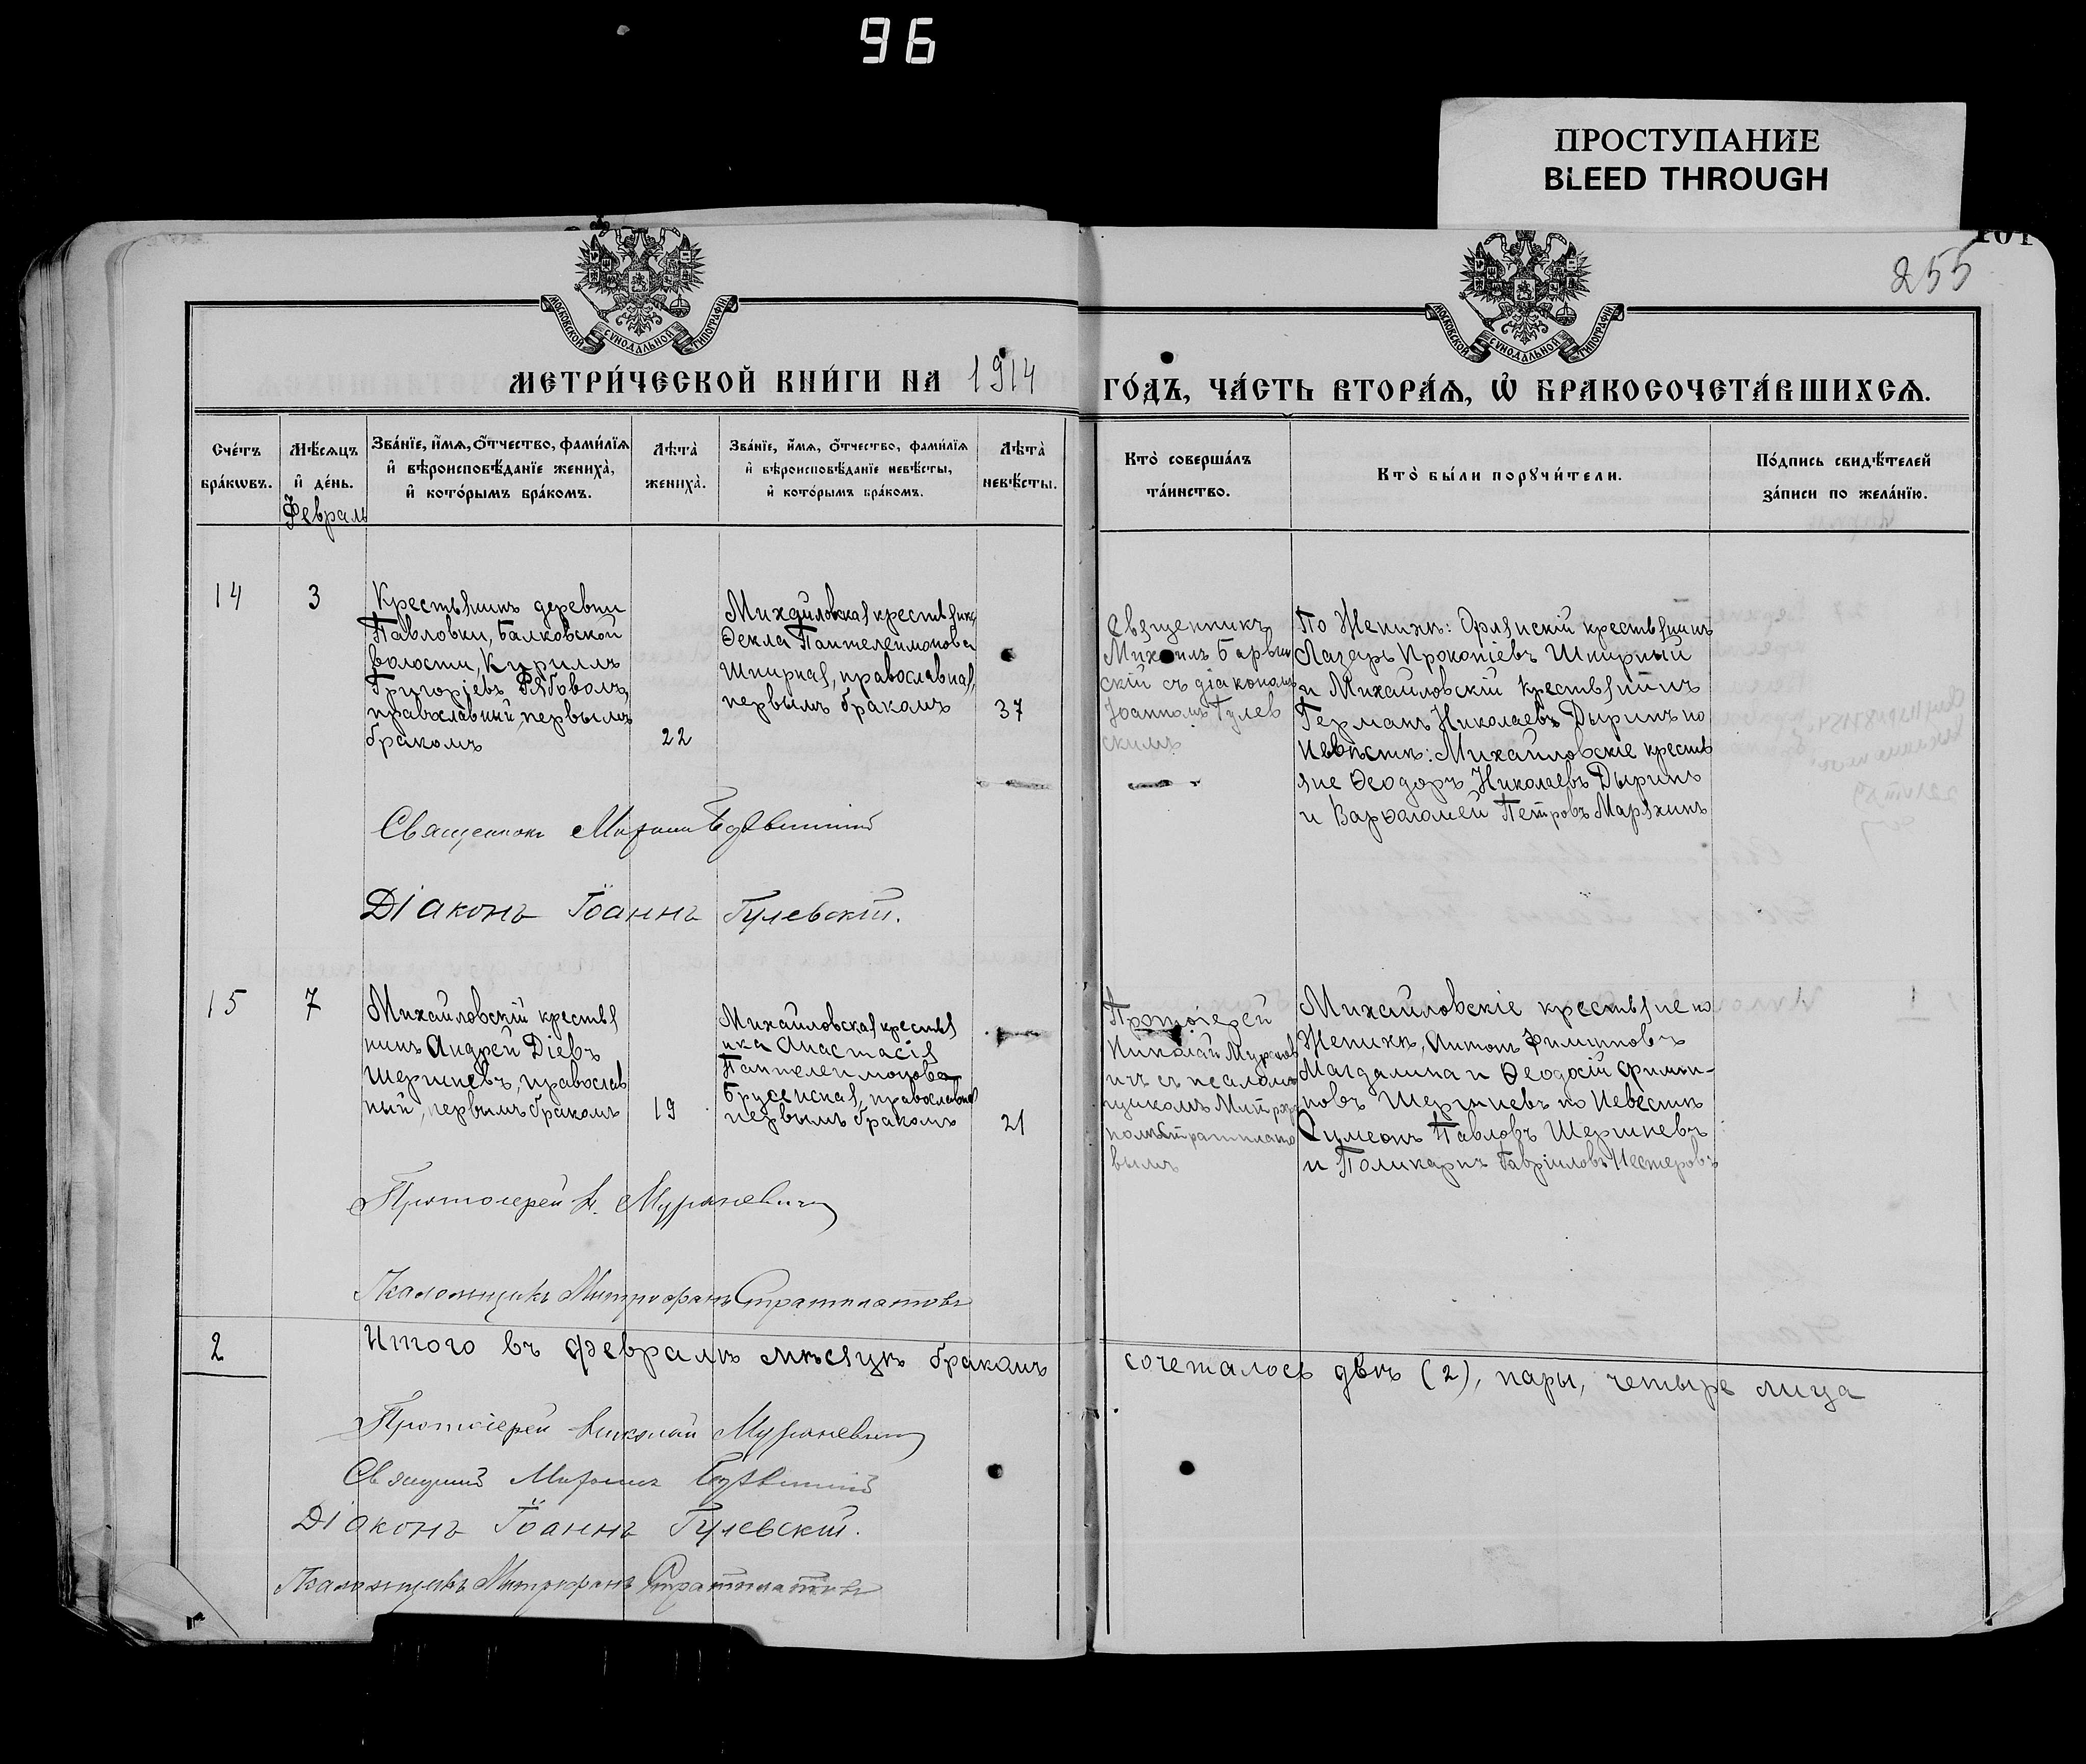 96
ПРОСТУПАНИЕ
BLEED THROUGH
101
255
МОСКОВСКОЙ СУНОДАЛЬНОЙ ТИПОГРАФІИ
МОСКОВСКОЙ СУНОДАЛЬНОЙ ТИПОГРАФІИ
МЕТРИ́ЧЕСКОЙ КНИ́ГИ НА 1914
ГО́ДЪ, ЧА́СТЬ ВТОРА́Ѧ, Ѡ҆ БРАКОСОЧЕТА́ВШИХСѦ.
Сче́тъ бра́кѡвъ.
Мѣ́сѧцъ и҆ де́нь.
Февраль
Зва́нїе, и҆́мѧ, ѻ҆́тчество, фами́лїѧ
и҆ вѣроисповѣ́данїе жениха̀,
и҆ кото́рымъ бра́комъ.
Лѣ́та̀ жениха̀.
Зва́нїе, и҆́мѧ, ѻ҆́тчество, фами́лїѧ
и҆ вѣроисповѣ́данїе невѣ́сты,
и҆ кото́рымъ бра́комъ.
Лѣ́та̀ невѣ́сты.
Кто̀ соверша́лъ
та́инство.
Кто̀ бы́ли порꙋчи́тели.
По́дпись свидѣ́телей
за́писи по жела́нїю.
14
3
Крестьянинъ деревни
Павловки, Балковской
волости, Кириллъ
Григоріевъ Рябоволъ,
православный, первымъ
бракомъ
22
Михайловская крестьянка
Ѳекла Пантелеимонова
Шпирная, православная,
первымъ бракомъ
37
Священникъ
Михаилъ
скій съ діакономъ
Іоанномъ Гулев
скимъ
По Женихѣ: Орлянскій крестьянинъ
Лазарь Прокопіевъ Шпирный
и Михайловскій крестьянинъ
Германъ Николаевъ Дыринъ по
Невѣстѣ: Михайловскіе кресть
яне Ѳеодоръ Николаевъ Дыринъ
и Варѳоломей Петровъ Маряхинъ
Священникъ Михаилъ
Діаконъ Іоаннъ Гулевскій.
15
7
Михайловскій крестья
нинъ Андрей Діевъ
Шершневъ, православ
ный, первымъ бракомъ
19
Михайловская крестья
нка Анастасія
Пантелеимонова
Брусенская, православная
первымъ бракомъ
21
Протоіерей
Николай Мураневи
чъ съ псалом
щикомъ Митро
номъ Стратилато
вымъ
Михайловскіе крестьяне по
Женихѣ, Антонъ Филипповъ
Магдалина и Ѳеодосій Филип-
повъ Шершневъ по Невестѣ
Симеонъ Павловъ Шершневъ
и Поликарпъ Гавріиловъ Нестеровъ
Протоіерей Н. Мураневичъ
Псаломщикъ Митрофанъ Стратилатовъ
2
Итого въ февралѣ мѣсяцѣ бракомъ сочеталось двѣ (2), пары, четыре лица
Протоіерей Николай Мураневичъ
Священникъ Михаилъ
Діаконъ Іоаннъ Гулевскій.
Псаломщикъ Митрофанъ Стратилатовъ